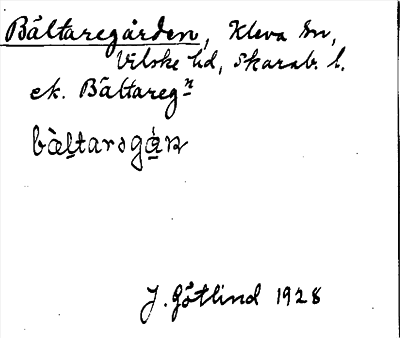 Bältaregården, Kleva sn,
Vilske hd, Skarab. l.
ek. Bältaregⁿ
J. Götlind 1928